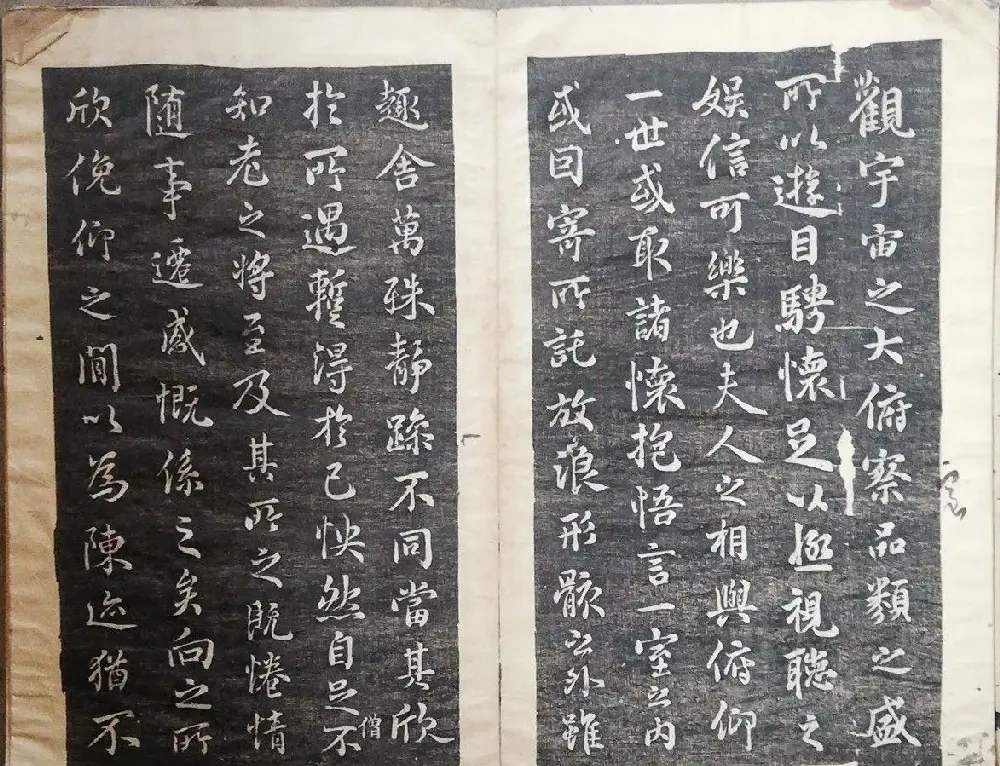 觀宇宙之大俯察品類之盛
所以遊目騁懷足以極視聽之
娱信可樂也夫人之相與俯仰
一世或取諸懷抱悟言一室之内
或因寄所託放浪形骸之外雖
趣舍萬殊靜躁不同當其欣
於所遇暫得於己怏然自足不
僧
知老之將至及其所之既惓情
随事遷感慨係之矣向之所
欣俛仰之間以為陳迹猶不